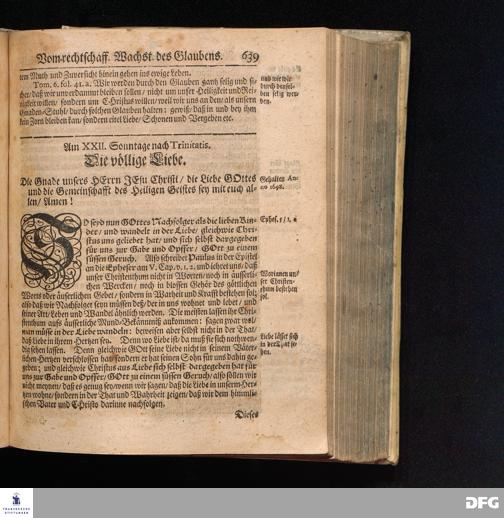 Vom rechtschaff. Wachst. des Glaubens. 639
tem Muth und Zuversicht hinein gehen ins ewige Leben.
Tom. 6. fol. 41. a. Wir werden durch den Glauben gantz selig und si-
cher/ daß wir unverdammt bleiben sollen/ nicht um unser Heiligkeit und Rei-
nigkeit willen/ sondern um Christus willen/ weil wir uns an den/ als unsern
Gnaden-Stuhl/ durch solchen Glauben halten: gewiß/ daß in und bey ihm
kein Zorn bleiben kan/ sondern eitel Liebe/ Schonen und Vergeben etc.
und wie wir
durch densel-
ben selig wer-
den.
Am XXII. Sonntage nach Trinitatis.
Die völlige Liebe.
Die Gnade unsers HErrn JEsu Christi/ die Liebe GOttes
und die Gemeinschafft des Heiligen Geistes sey mit euch al-
len/ Amen!
Gehalten An-
SO seyd nun GOttes Nachfolger als die lieben Kin-
der/ und wandelt in der Liebe/ gleichwie Chri-
stus uns geliebet hat/ und sich selbst dargegeben
für uns zur Gabe und Opffer/ GOtt zu einem
süssen Geruch. Also schreibet Paulus in der Epistel
an die Epheser am V. Cap. v. 1. 2. und lehret uns/ daß
unser Christenthum nicht in Worten/ noch in äusserli-
chen Wercken/ noch in blossen Gehör des göttlichen
Worts oder äuserlichen Gebet/ sondern in Warheit und Krafft bestehen sol;
also daß wir Nachfolger seyn müssen deß/ der in uns wohnet und lebet/ und
seiner Art/ Leben und Wandel ähnlich werden. Die meisten lassen ihr Chri-
stenthum auf äusserliche Mund-Bekänntniß ankommen: sagen zwar wol/
man müsse in der Liebe wandeln: beweisen aber selbst nicht in der That/
daß Liebe in ihrem Hertzen sey. Denn wo Liebe ist/ da muß sie sich nothwen-
dig sehen lassen. Denn gleichwie GOtt seine Liebe nicht in seinem Väter-
lichen Hertzen verschlossen hat/ sondern er hat seinen Sohn für uns dahin ge-
geben; und gleichwie Christus aus Liebe sich selbst dargegeben hat für
uns zur Gabe und Opffer/ GOtt zu einem süssen Geruch/ also sollen wir
nicht meynen/ daß es genug sey/ wenn wir sagen/ daß die Liebe in unserm Her-
tzen wohne/ sondern in der That und Wahrheit zeigen/ daß wir dem himmli-
schen Vater und Christo darinne nachfolgen.
Ephes. 5/ 1. 2.
Worinnen un-
ser Christen-
thum bestehen
sol.
Liebe lässet sich
in der That se-
hen.
Dieses
FRANCKESCHE
STIFTUNGEN
DFG